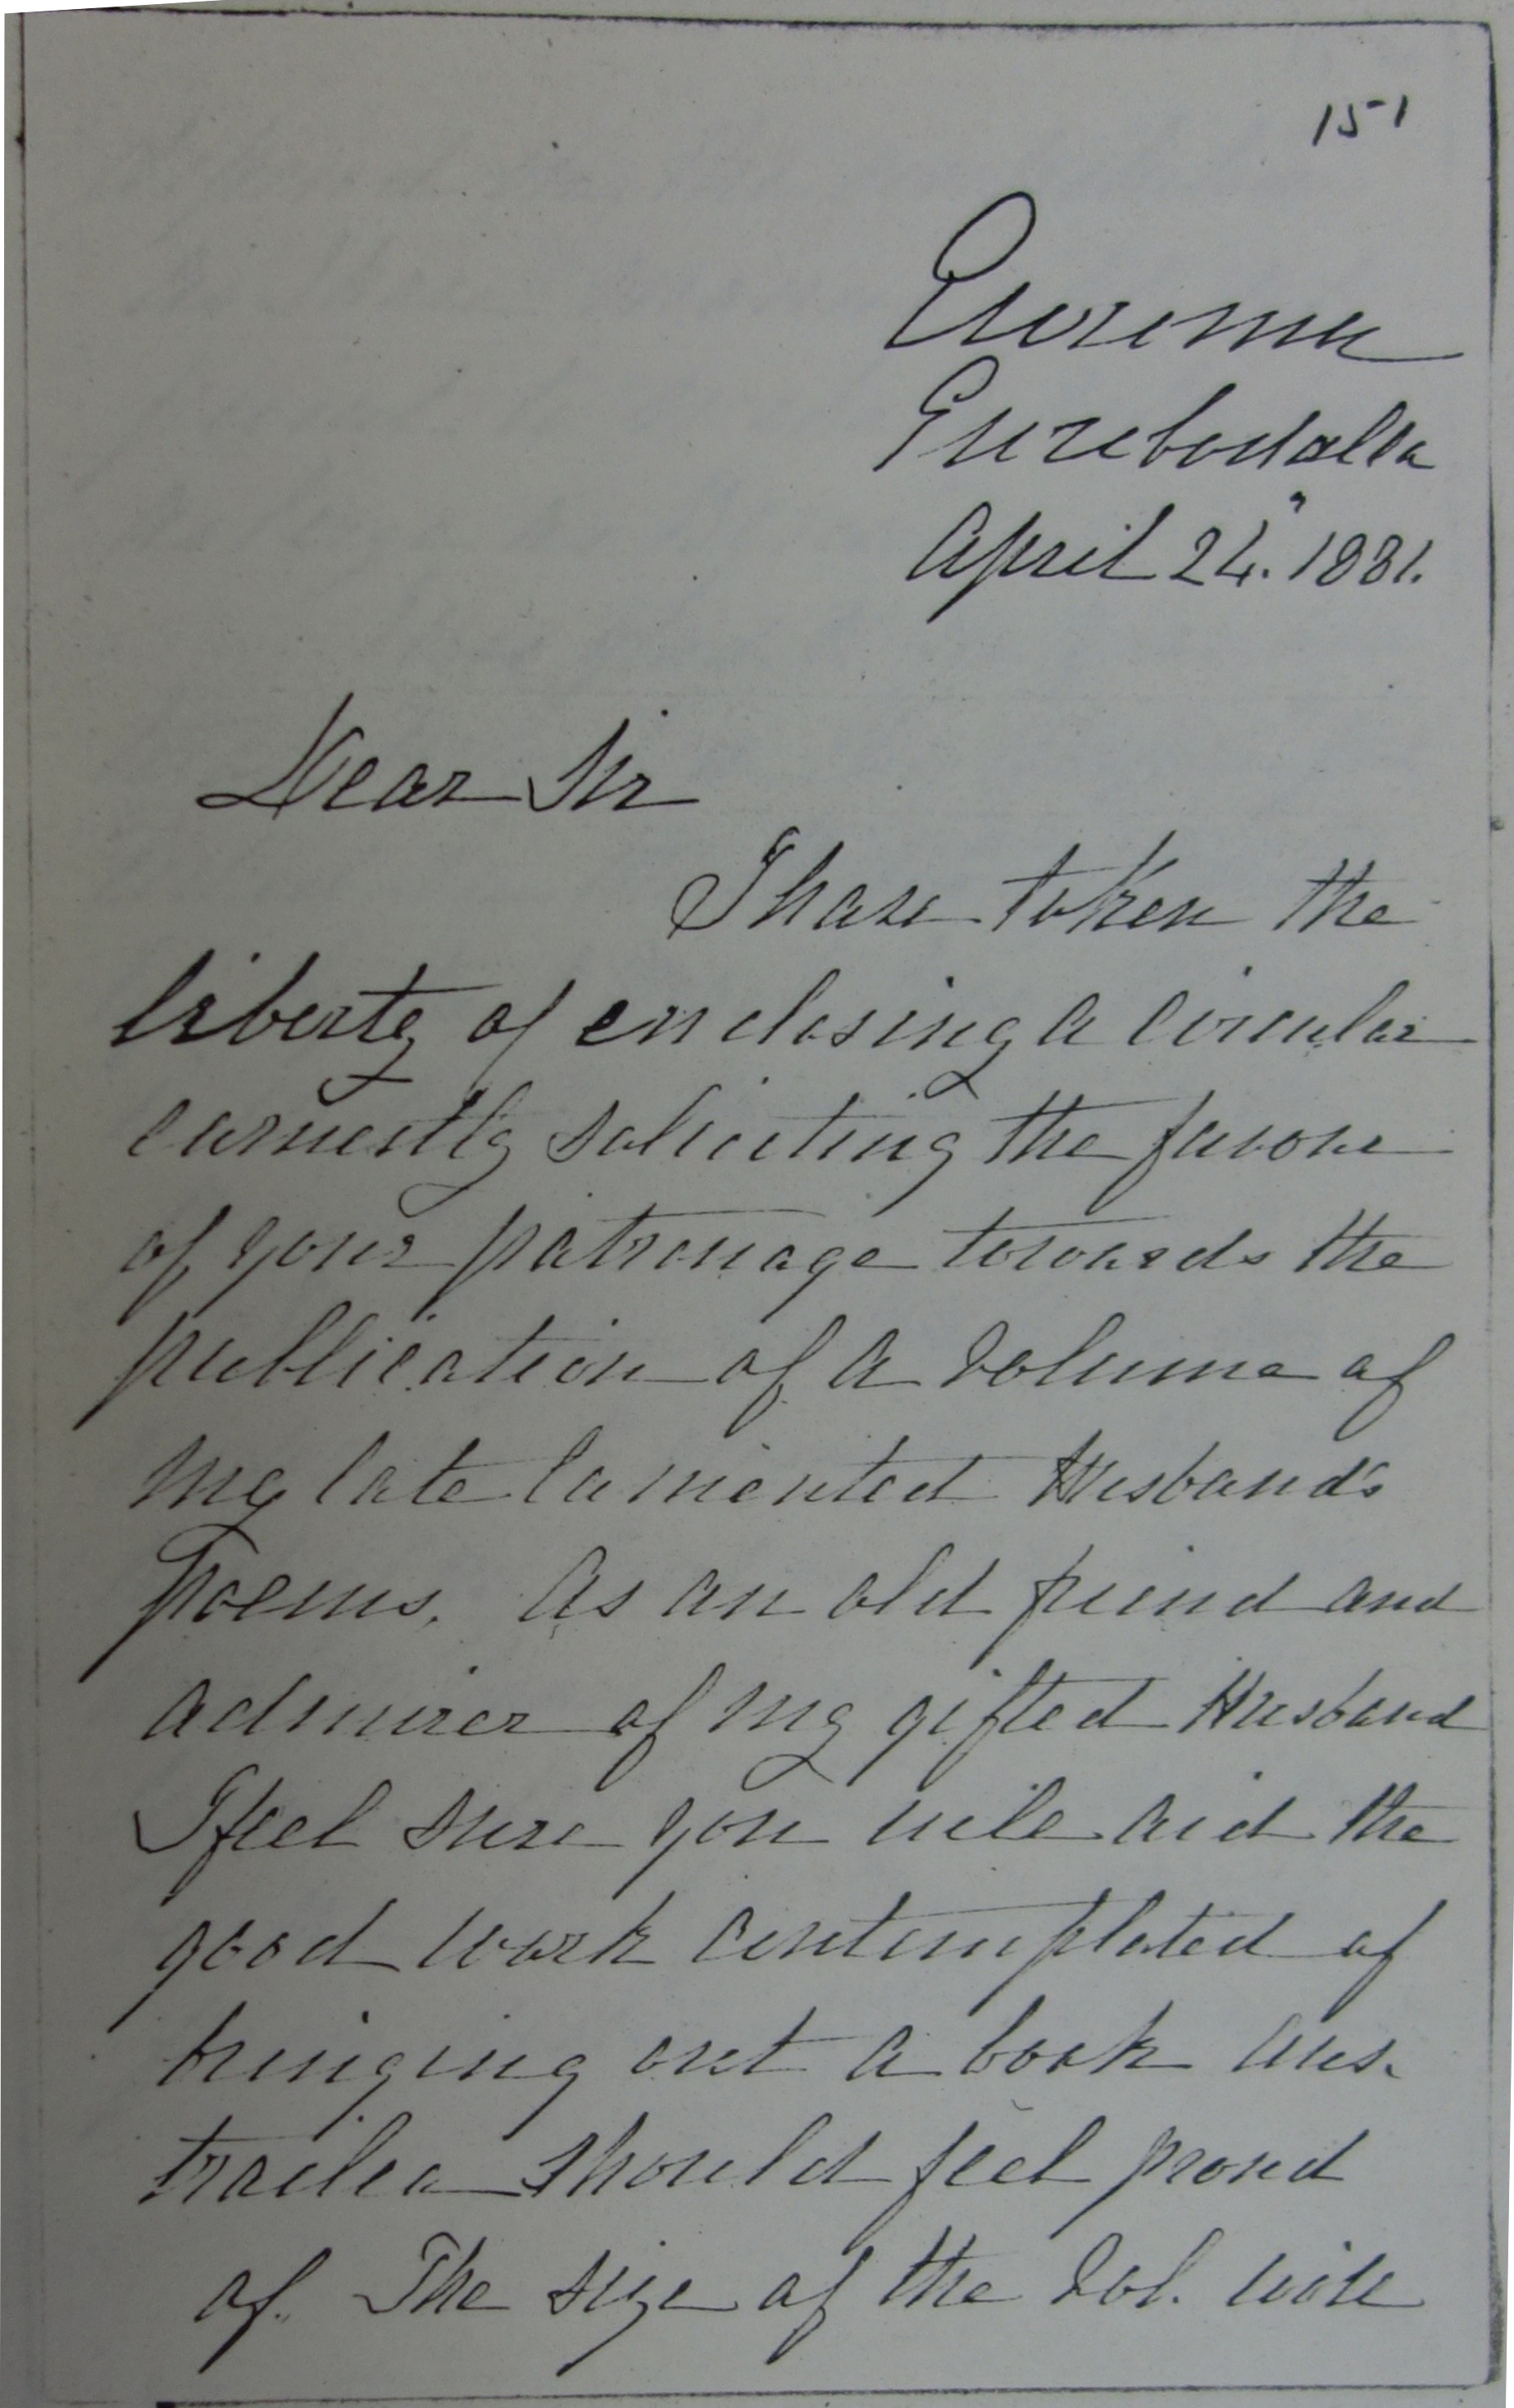 151
Euroma
Eurobodalla
April 24". 1881.
Dear Sir
I have taken the
liberty of enclosing a circular
earnestly soliciting the favour
of your patronage towards the
publication of a volume of
my late lamented Husband's
Poems. As an old friend and
admirer of my gifted Husband
I feel sure you will aid the
good work contemplated of
bringing out a book Aus-
tralia should feel proud
of. The size of the vol. will